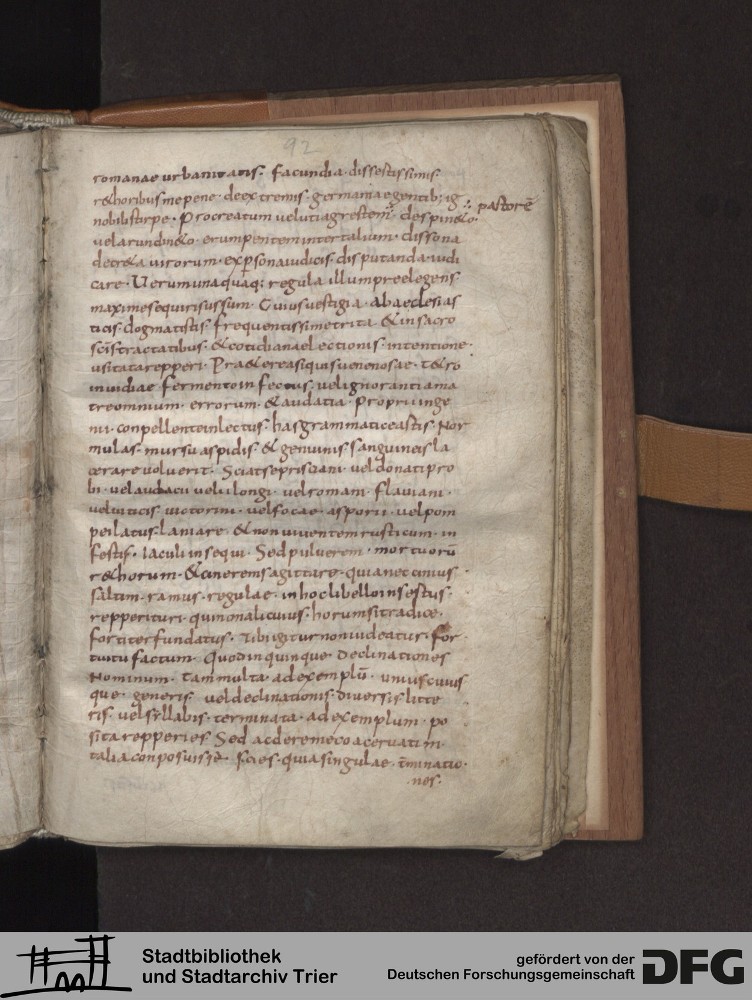 92
romanae urbanitatis· facundia· dissertissimis·
r&horibus me pene· de extremis· germaniae gentib; ig
nobili stirpe· Procreatum veluti agrestem· de spin&o·
∴ pastorē
vel arundin&o· erumpentem intertalium· dissona
decr&a virorum· ex persona iudicis· disputanda iudi
care· Uerum unaquaq; regula illum preelegens·
maxime sequi risus sum· Cuius vestigia· ab aeclesias
ticis· dogmatistis· frequentissime trita· & in sacro
scīs tractatibus· & cotidiana electionis· intentione·
usitata repperi· Pra&erea si quis venenosae· t&ro
invidiae· fermento infectus· vel ignorantia ma
tre omnium· errorum· & audatia· Proprii inge
nii· conpellente inlectus· has grammaticae astis· Nor
mulas· mursu aspidis· & genuinis· sanguineis la
cerare voluerit· Sciat se prisciani· vel donati pro
bi· vel audacii velii longi· vel romani· flaviani·
vel viticis· victorini· vel focae· asporii· vel pom
peii latus laniare· & non viventem rusticum· in
festis· iaculi insequi· Sed pulverem· mortuorū
r&horum· & cinerem sagittare· quia nec unius
saltim· ramus· regulae· in hoc libello insertus·
repperitur· qui non alicuius· horum sit radice·
fortiter fundatus· Tibi igitur non videatur· for
tuitu factum· Quod in quinque declinationes
Nominum· tam multa· ad exemplū· unius cuius
que· generis· vel declinationis· diversis litte
ris· vel syllabis· terminata· ad exemplum· po
sita repperies Sed ac de re me coacervatim·
talia conposuisse· scies· quia singulae· tmīnatio·
·nes·
Stadtbibliothek
und Stadtarchiv Trier
gefördert von der
Deutschen Forschungsgemeinschaft
DFG